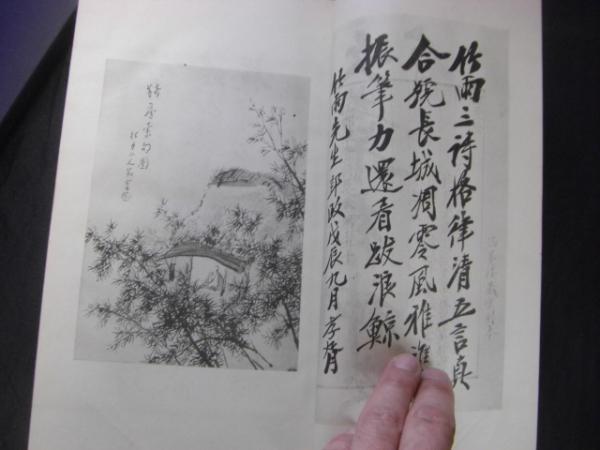 竹雨之詩格律清五言真
合號長城凋零風雅誰
振筆力還看跋浪鯨
竹雨先生郢政戊辰九月孝胥
索句圖